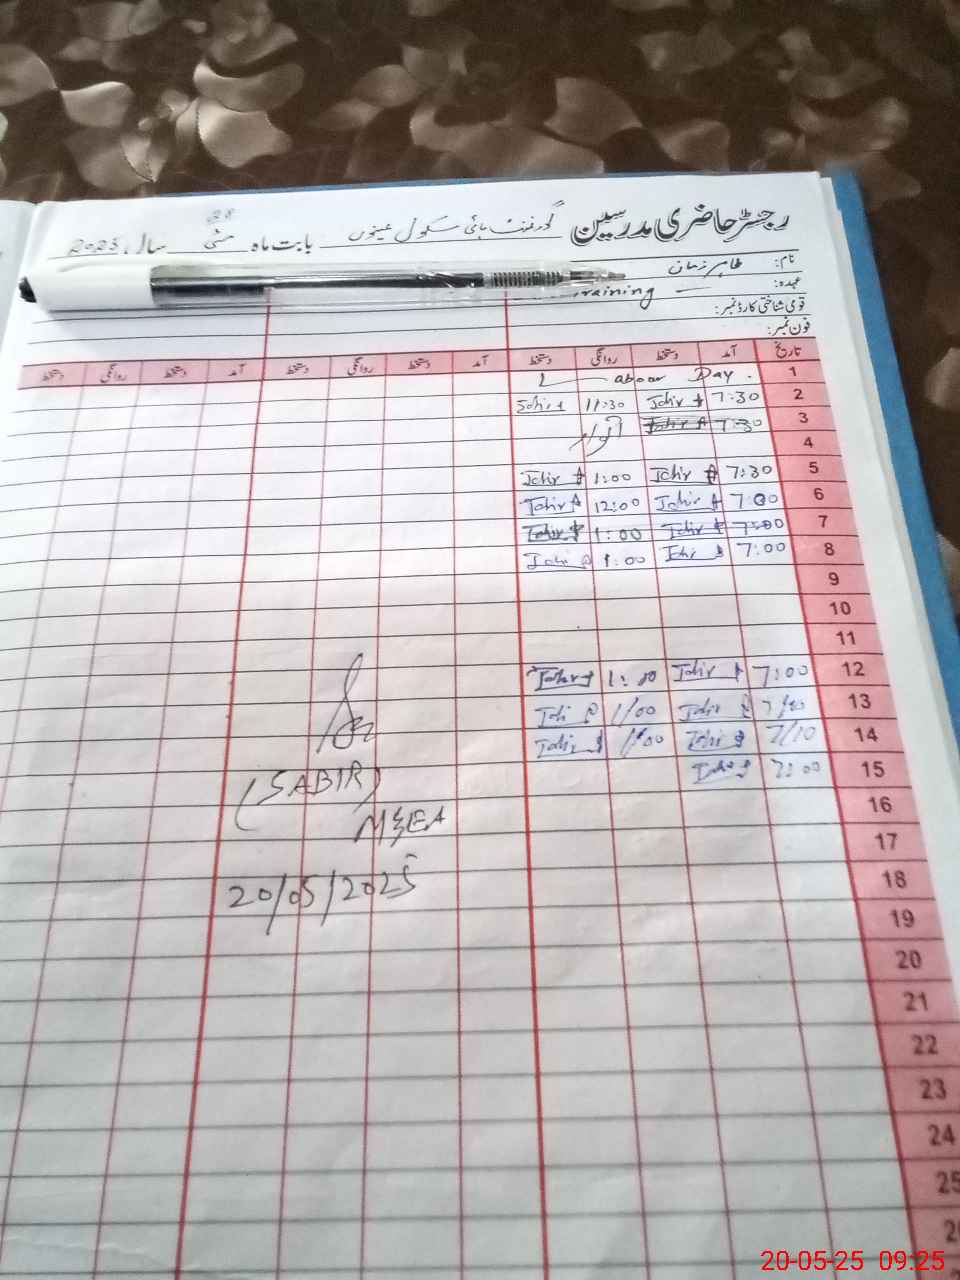 رجسٹر حاضری مدرسین گورنمنٹ ہائی سکول بابت ماہ مئی سال 2025
نام: طاہر زمان
عہدہ: Training
قومی شناختی کارڈ نمبر:
فون نمبر:
تاریخ آمد دستخط روانگی دستخط آمد دستخط روانگی دستخط آمد دستخط روانگی دستخط
1 Laboar Day.
2 7:30 Tahir 11:30 Tahir
3 7:30 Tahir
4 اتوار
5 7:30 Tahir 1:00 Tahir
6 7:00 Tahir 12:00 Tahir
7 7:00 Tahir 1:00 Tahir
8 7:00 Tahir 1:00 Tahir
9
10
11
12 7:00 Tahir 1:00 Tahir
13 Tahir 1/00 Tahir
14 7/10 Tahir 1/00 Tahir
15 7:00 Tahir
16
17
18
19
20
21
22
23
24
25
(SABIR)
M&EA
20/05/2025
20-05-25 09:25